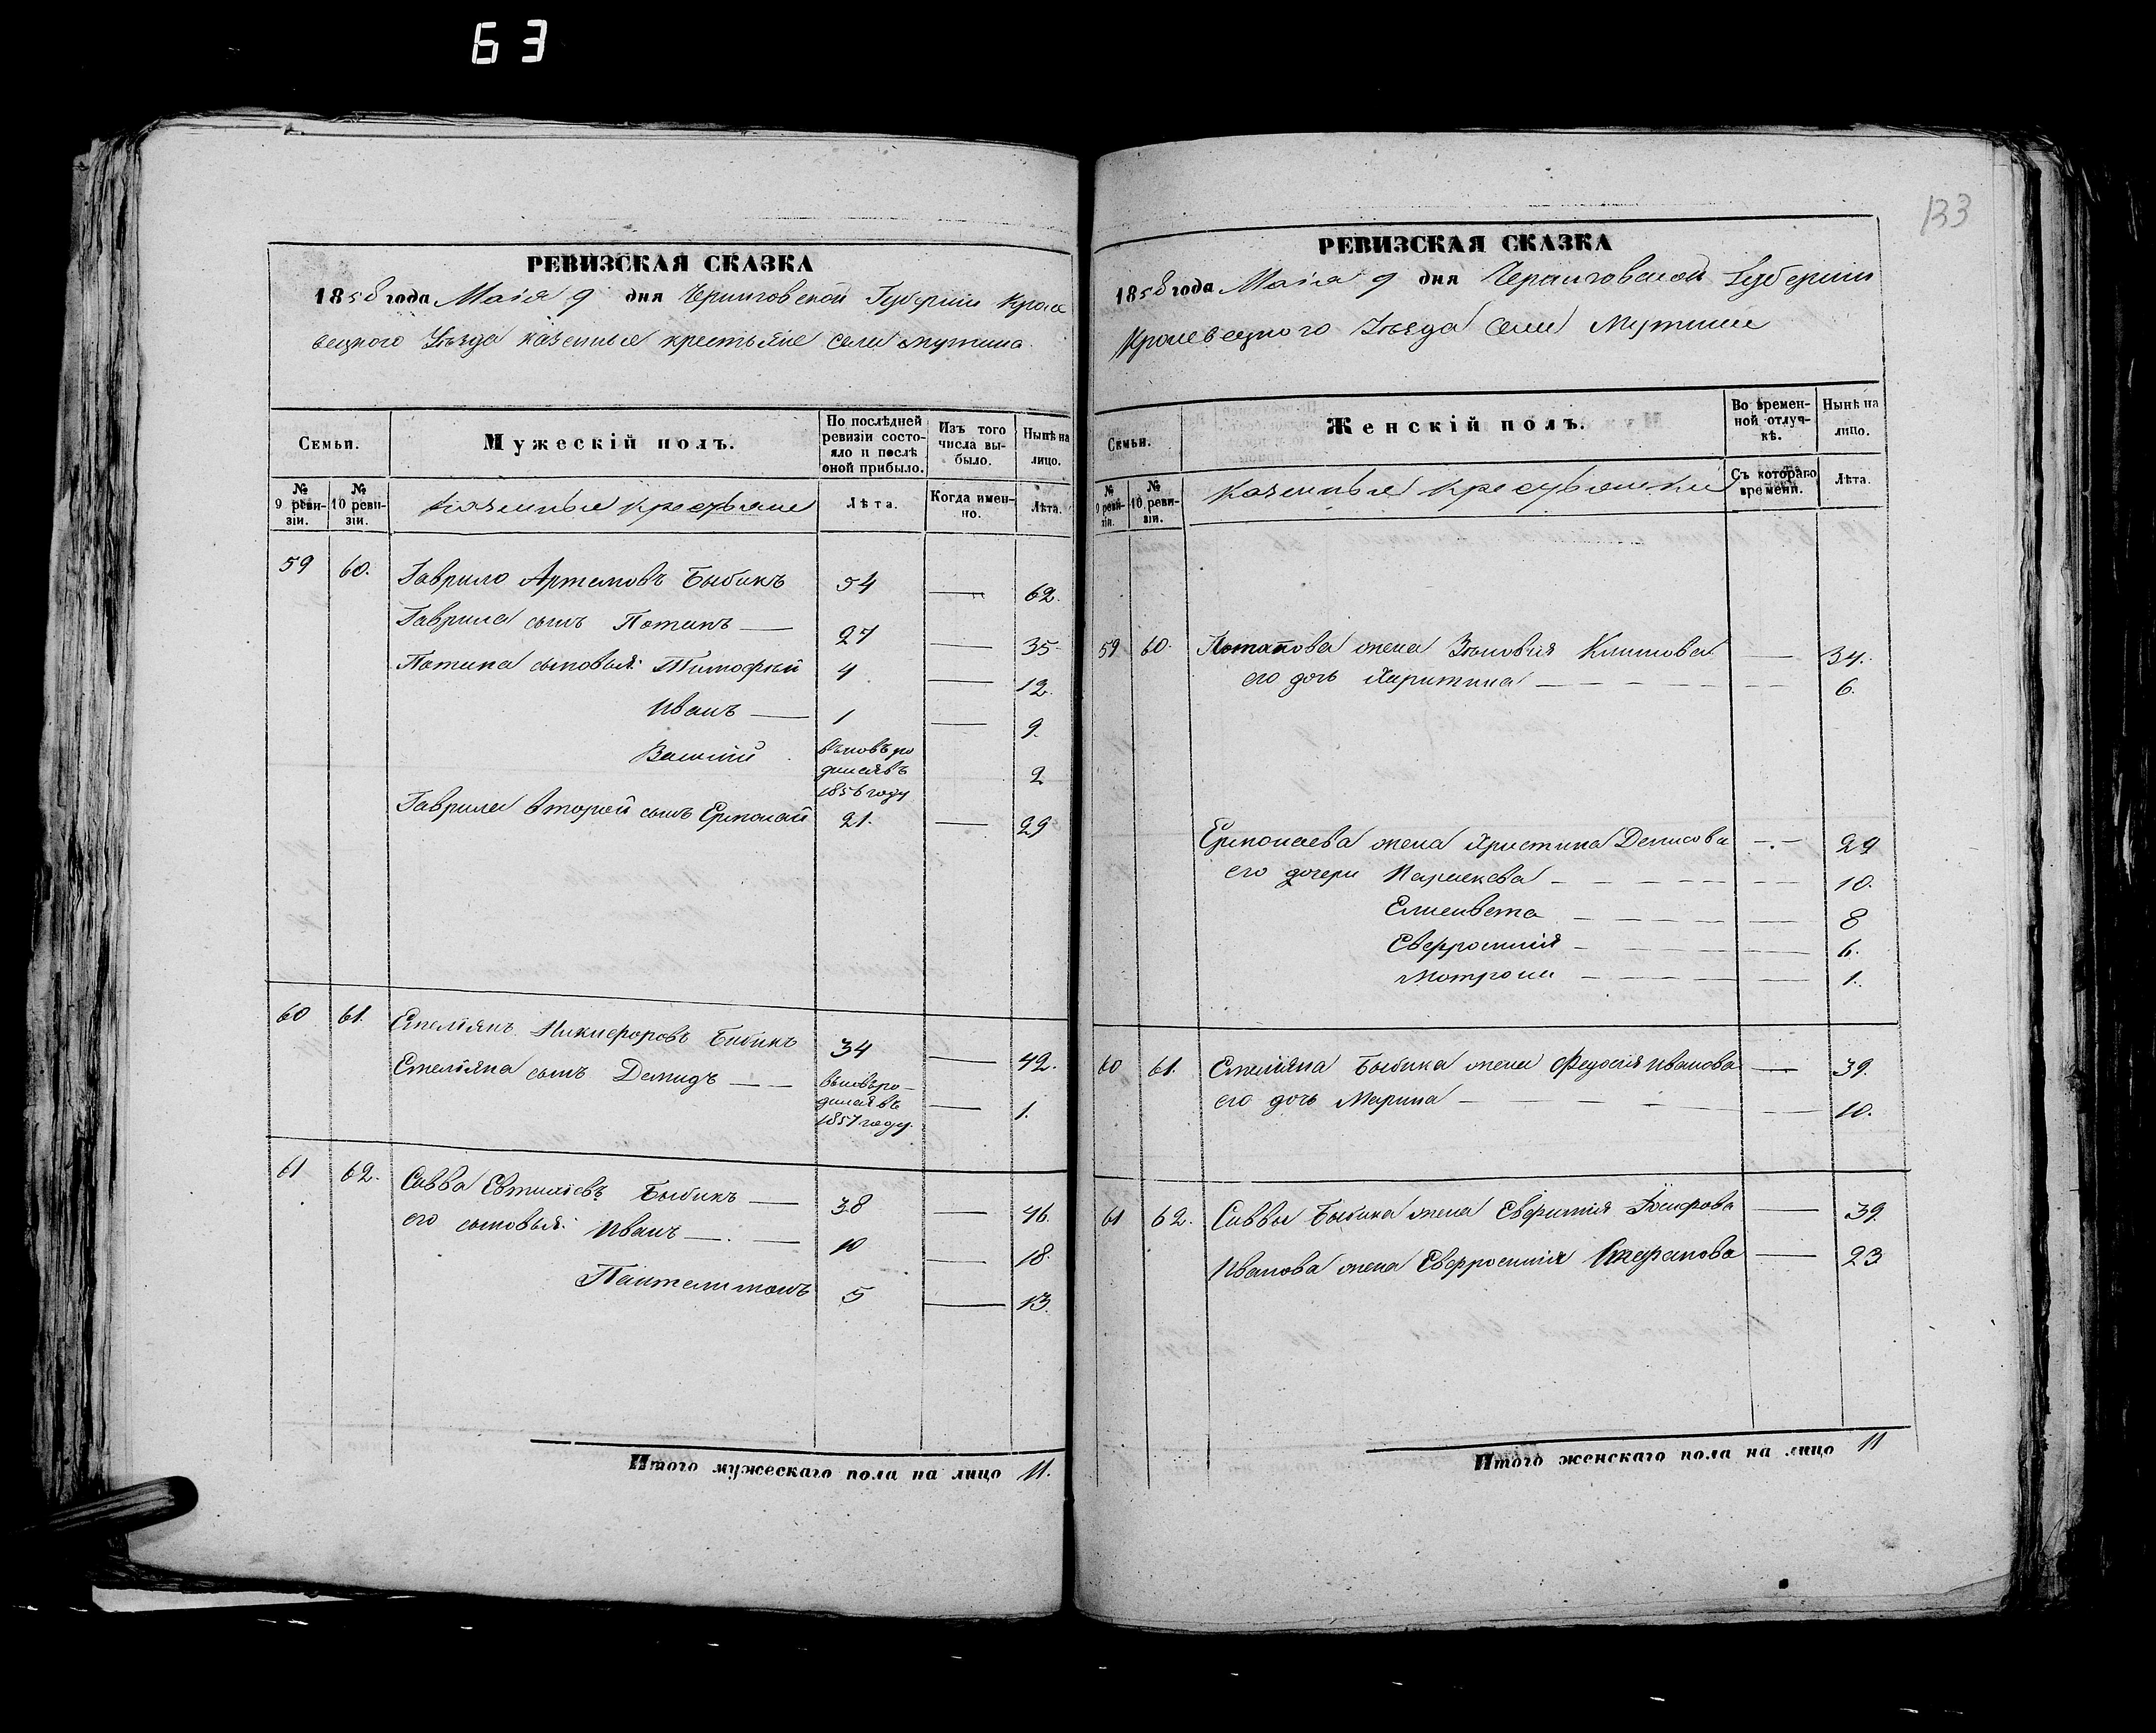 63
РЕВИЗСКАЯ СКАЗКА
1858 года Маія 9 дня Черниговской Губерніи Кроле
вецкого Уѣзда казенные крестьяне села Мутина
Семьи.
Мужескій полъ.
По послѣдней ревизіи состояло и послѣ оной прибыло.
Изъ того числа выбыло.
Нынѣ на лицо.
№ 9 ревизіи.
№ 10 ревизіи.
Казенные крестьяне
Лѣта.
Когда именно.
Лѣта.
59 60. Гаврило Артемовъ Быбикъ 54 — 62.
Гаврила сынъ Потапъ — 27 — 35
Потапа сыновья: Тимофѣй 4 — 12.
Иванъ — 1 — 9.
Василій вновь ро
дился въ
1856 году 2
Гаврила второй сынъ Ермолай 21. — 29
60 61. Емеліянъ Никифоровъ Бибикъ 34 — 42.
Емеліяна сынъ Демидъ — — вновь ро-
дился въ
1857 году. — 1.
61 62. Савва Евтихіевъ Быбикъ — 38 — 46.
его сыновья: Иванъ — . — 10 — 18.
Пантелимонъ 5 — 13.
Итого мужескаго пола на лицо 11.
133
РЕВИЗСКАЯ СКАЗКА
1858 года Маія 9 дня Черниговской Губерніи
Кролевецкого Уѣзда села Мутина
Семьи.
Женскій полъ.
Во временной отлучкѣ.
Нынѣ на лицо.
№ 9 ревизіи.
№ 10 ревизіи.
Казенные крестьянки
Съ котораго времени.
Лѣта.
59 60. Потапова жена Зѣновія Климова — 34.
его дочь Харитина — 6.
Ермолаева жена Христина Денисова — . — 29
его дочери Парасковья — 10.
Елисавета — 8
Евфросинія — 6.
Мотрона — 1.
60 61. Емеліяна Быбика жена Федосія Иванова — 39.
его дочь Марина — 10.
61 62. Саввы Быбика жена Евфимія — 39.
Иванова жена Евфросинія Стефанова — 23
Итого женскаго пола на лицо 11